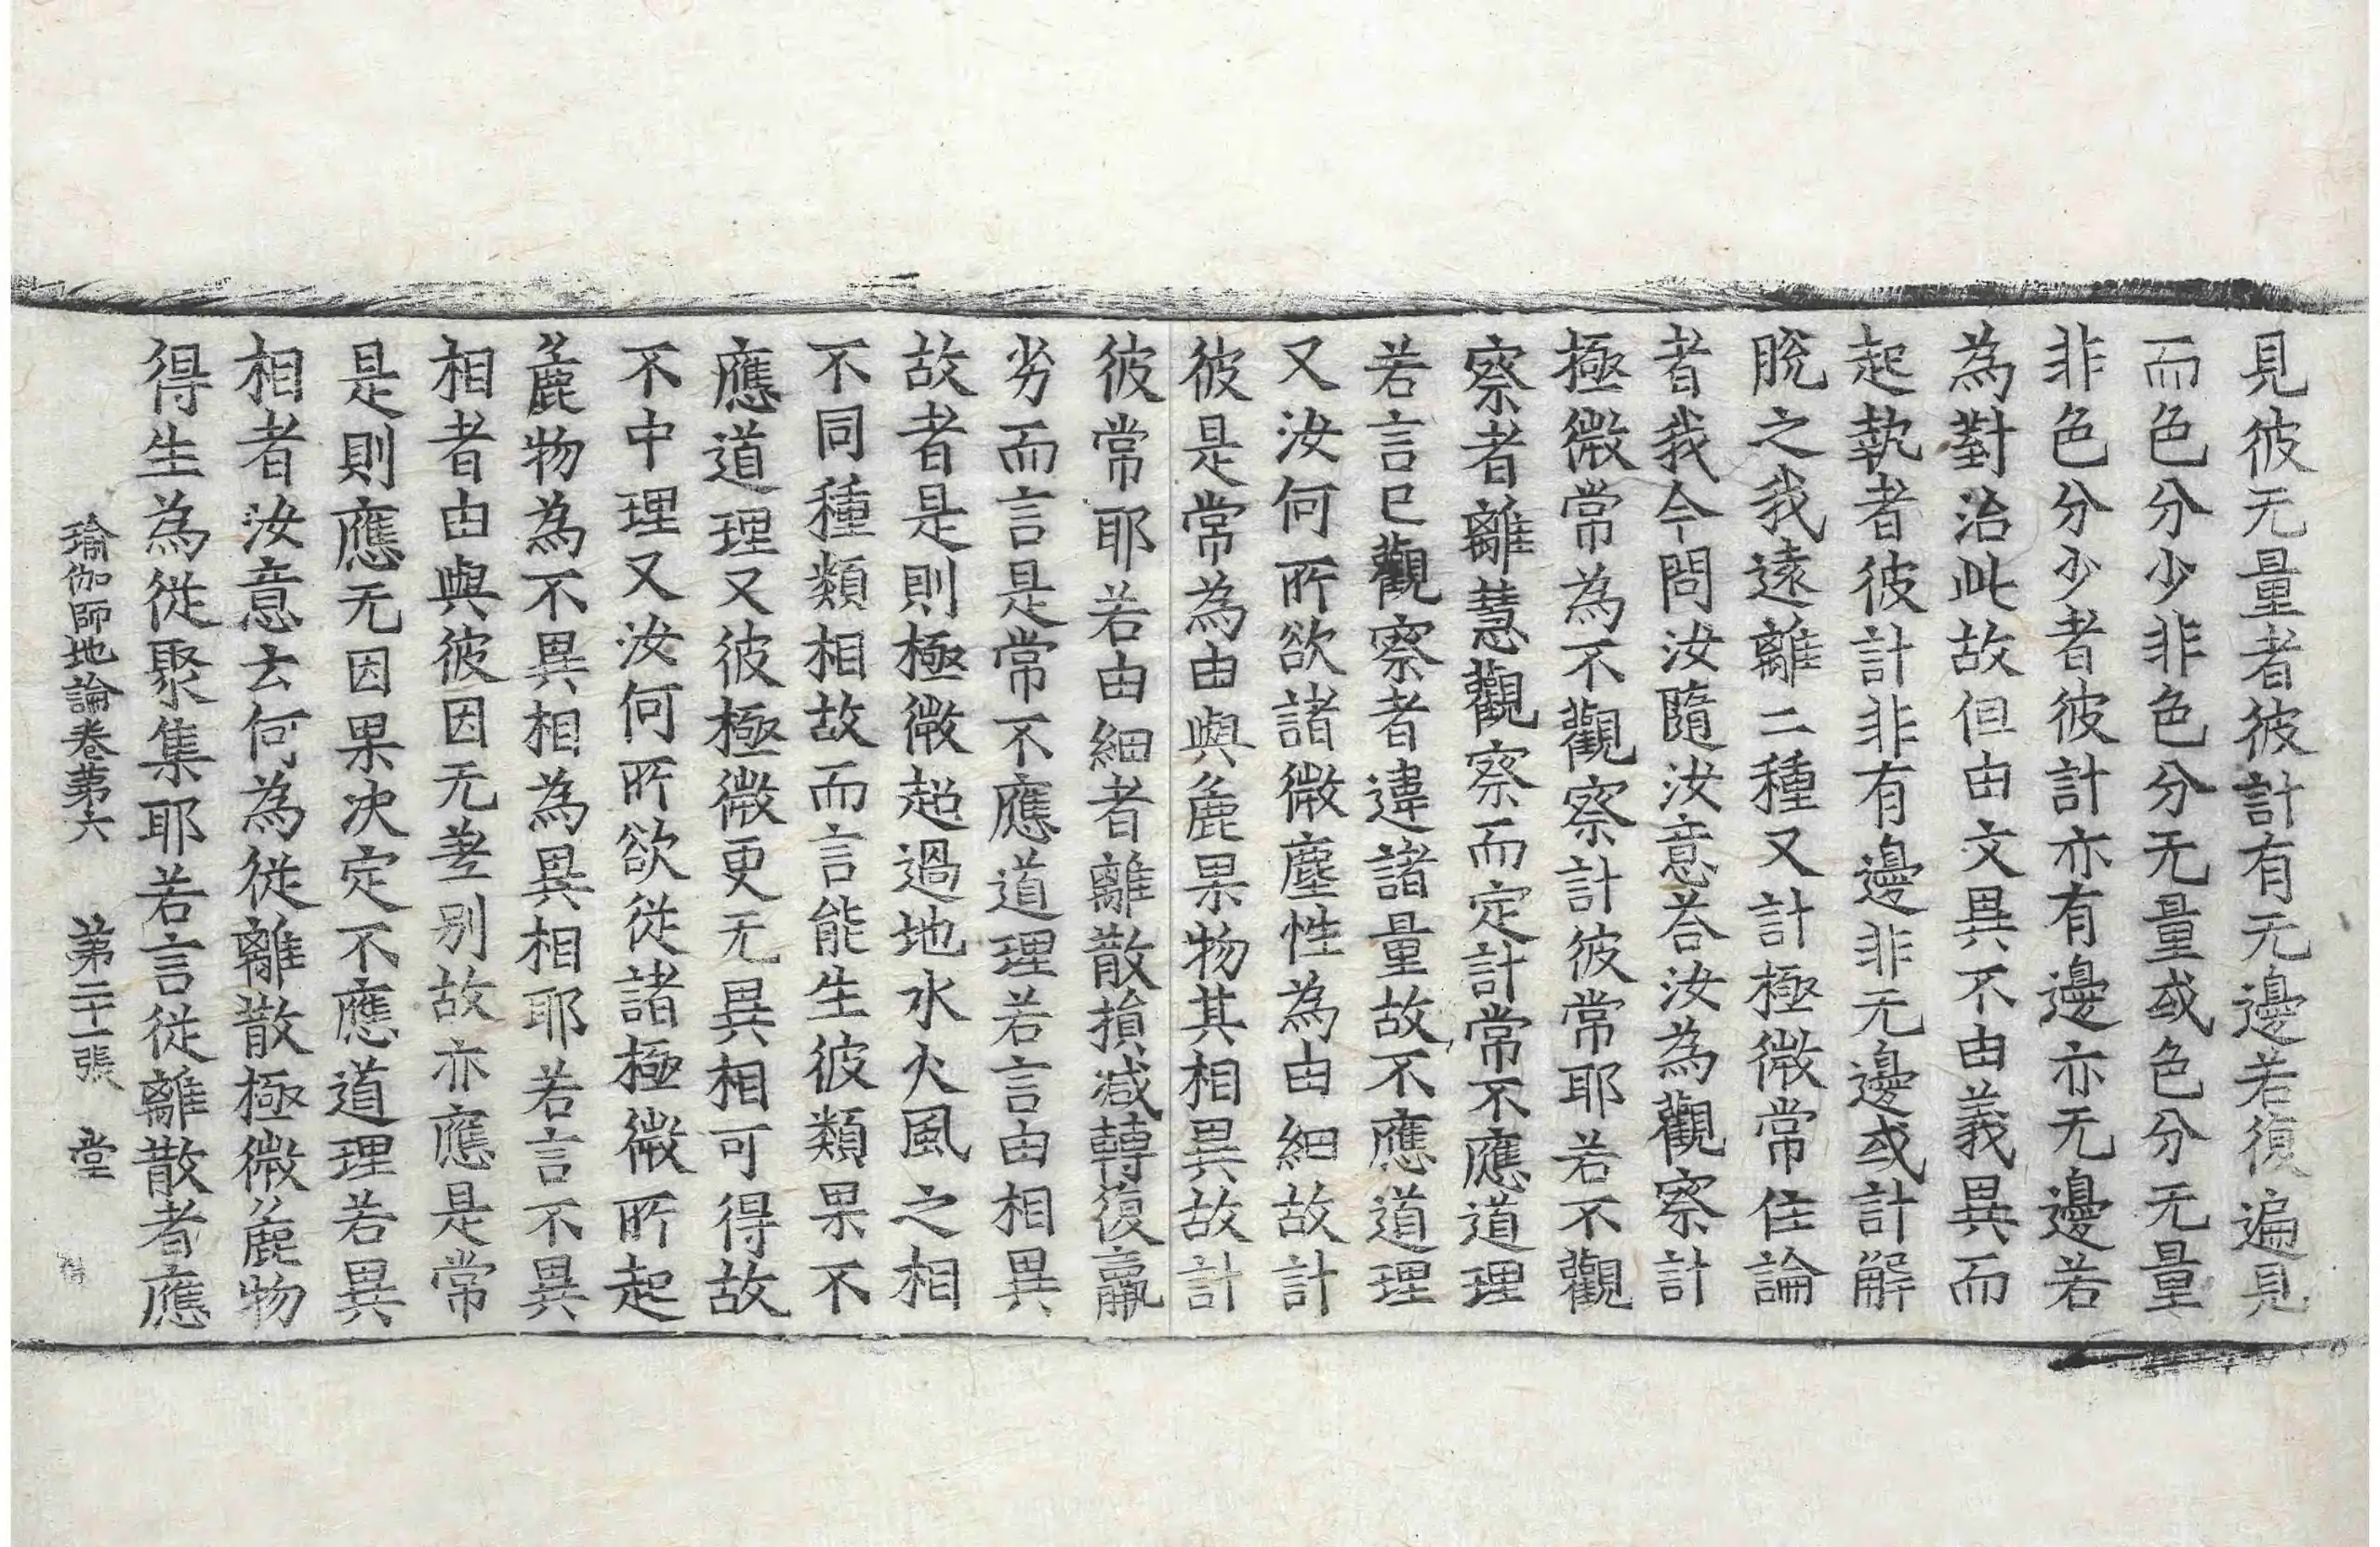 見彼无量者彼計有无邊若復遍見
而色分少非色分无量或色分无量
非色分少者彼計亦有邊亦无邊若
為對治此故但由文異不由義異而
起執者彼計非有邊非无邊或計解
脫之我遠離二種又計極微常住論
者我今問汝隨汝意荅汝為觀察計
極微常為不觀察計彼常耶若不觀
察者離慧觀察而定計常不應道理
若言已觀察者違諸量故不應道理
又汝何所欲諸微塵性為由細故計
彼是常為由與麁果物其相異故計
彼常耶若由細者離散損减轉復羸
劣而言是常不應道理若言由相異
故者是則極微超過地水火風之相
不同種類相故而言能生彼類果不
應道理又彼極微更无異相可得故
不中理又汝何所欲從諸極微所起
麁物為不異相為異相耶若言不異
相者由與彼因无差別故亦應是常
是則應无因果决定不應道理若異
相者汝意云何為從離散極微麁物
得生為從聚集耶若言從離散者應
瑜伽師地論卷第六 第二十一張 堂